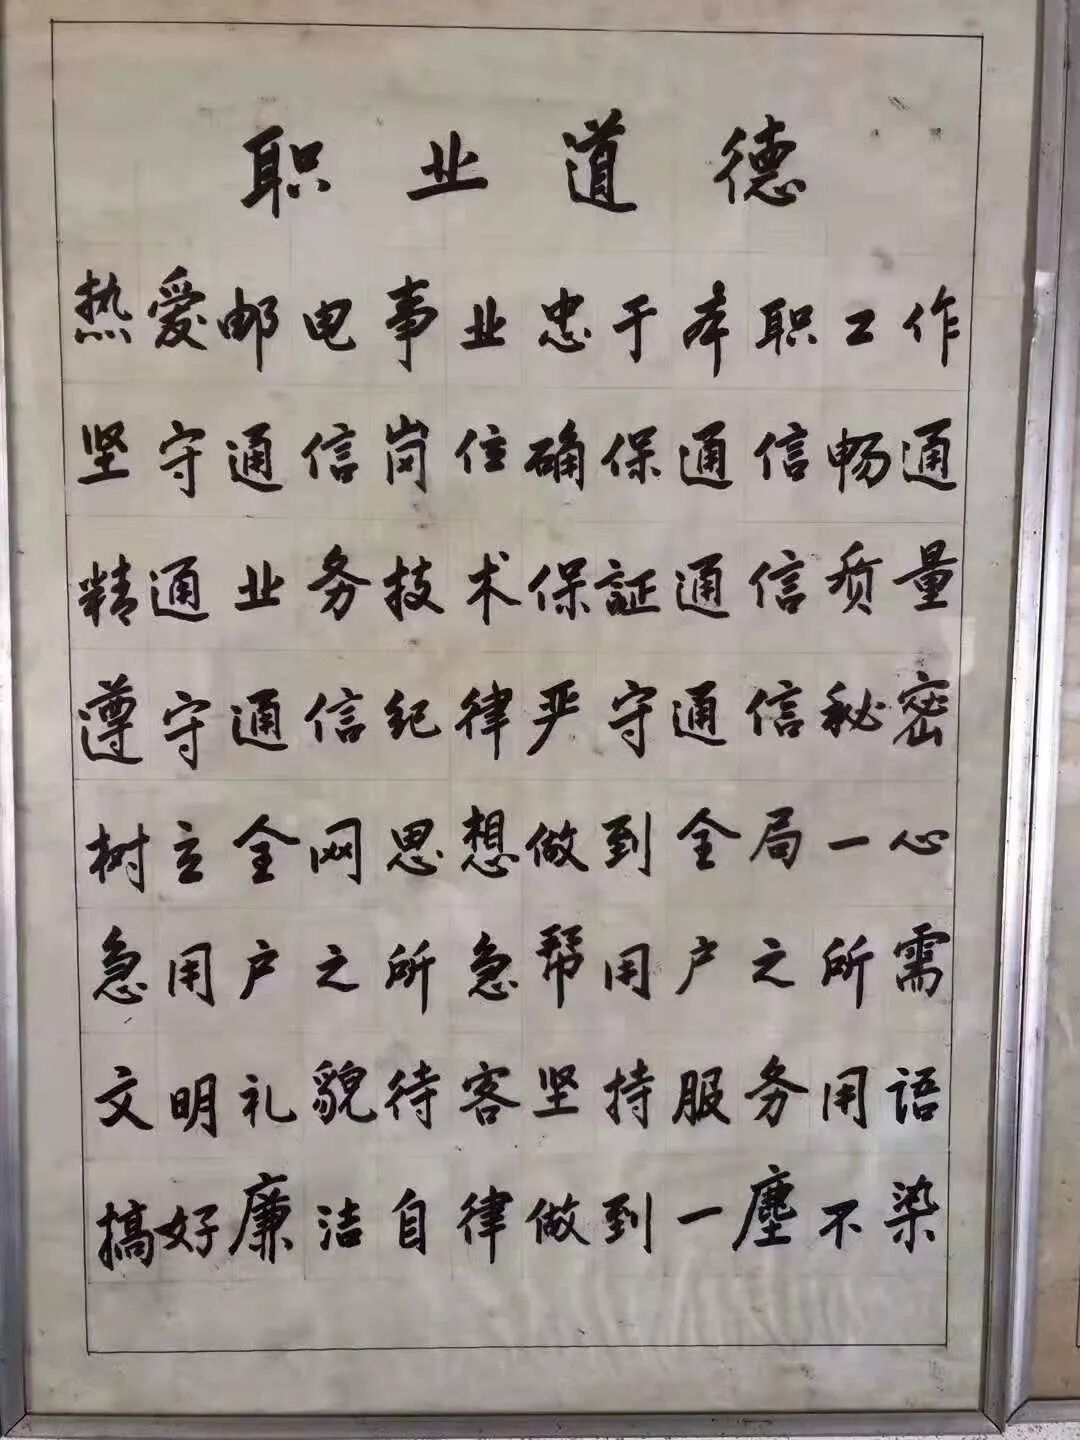 职业道德
热爱邮电事业忠于本职工作
坚守通信岗位确保通信畅通
精通业务技术保証通信质量
遵守通信纪律严守通信秘密
树立全网思想做到全局一心
急用户之所急帮用户之所需
文明礼貌待客坚持服务用语
搞好廉洁自律做到一塵不染